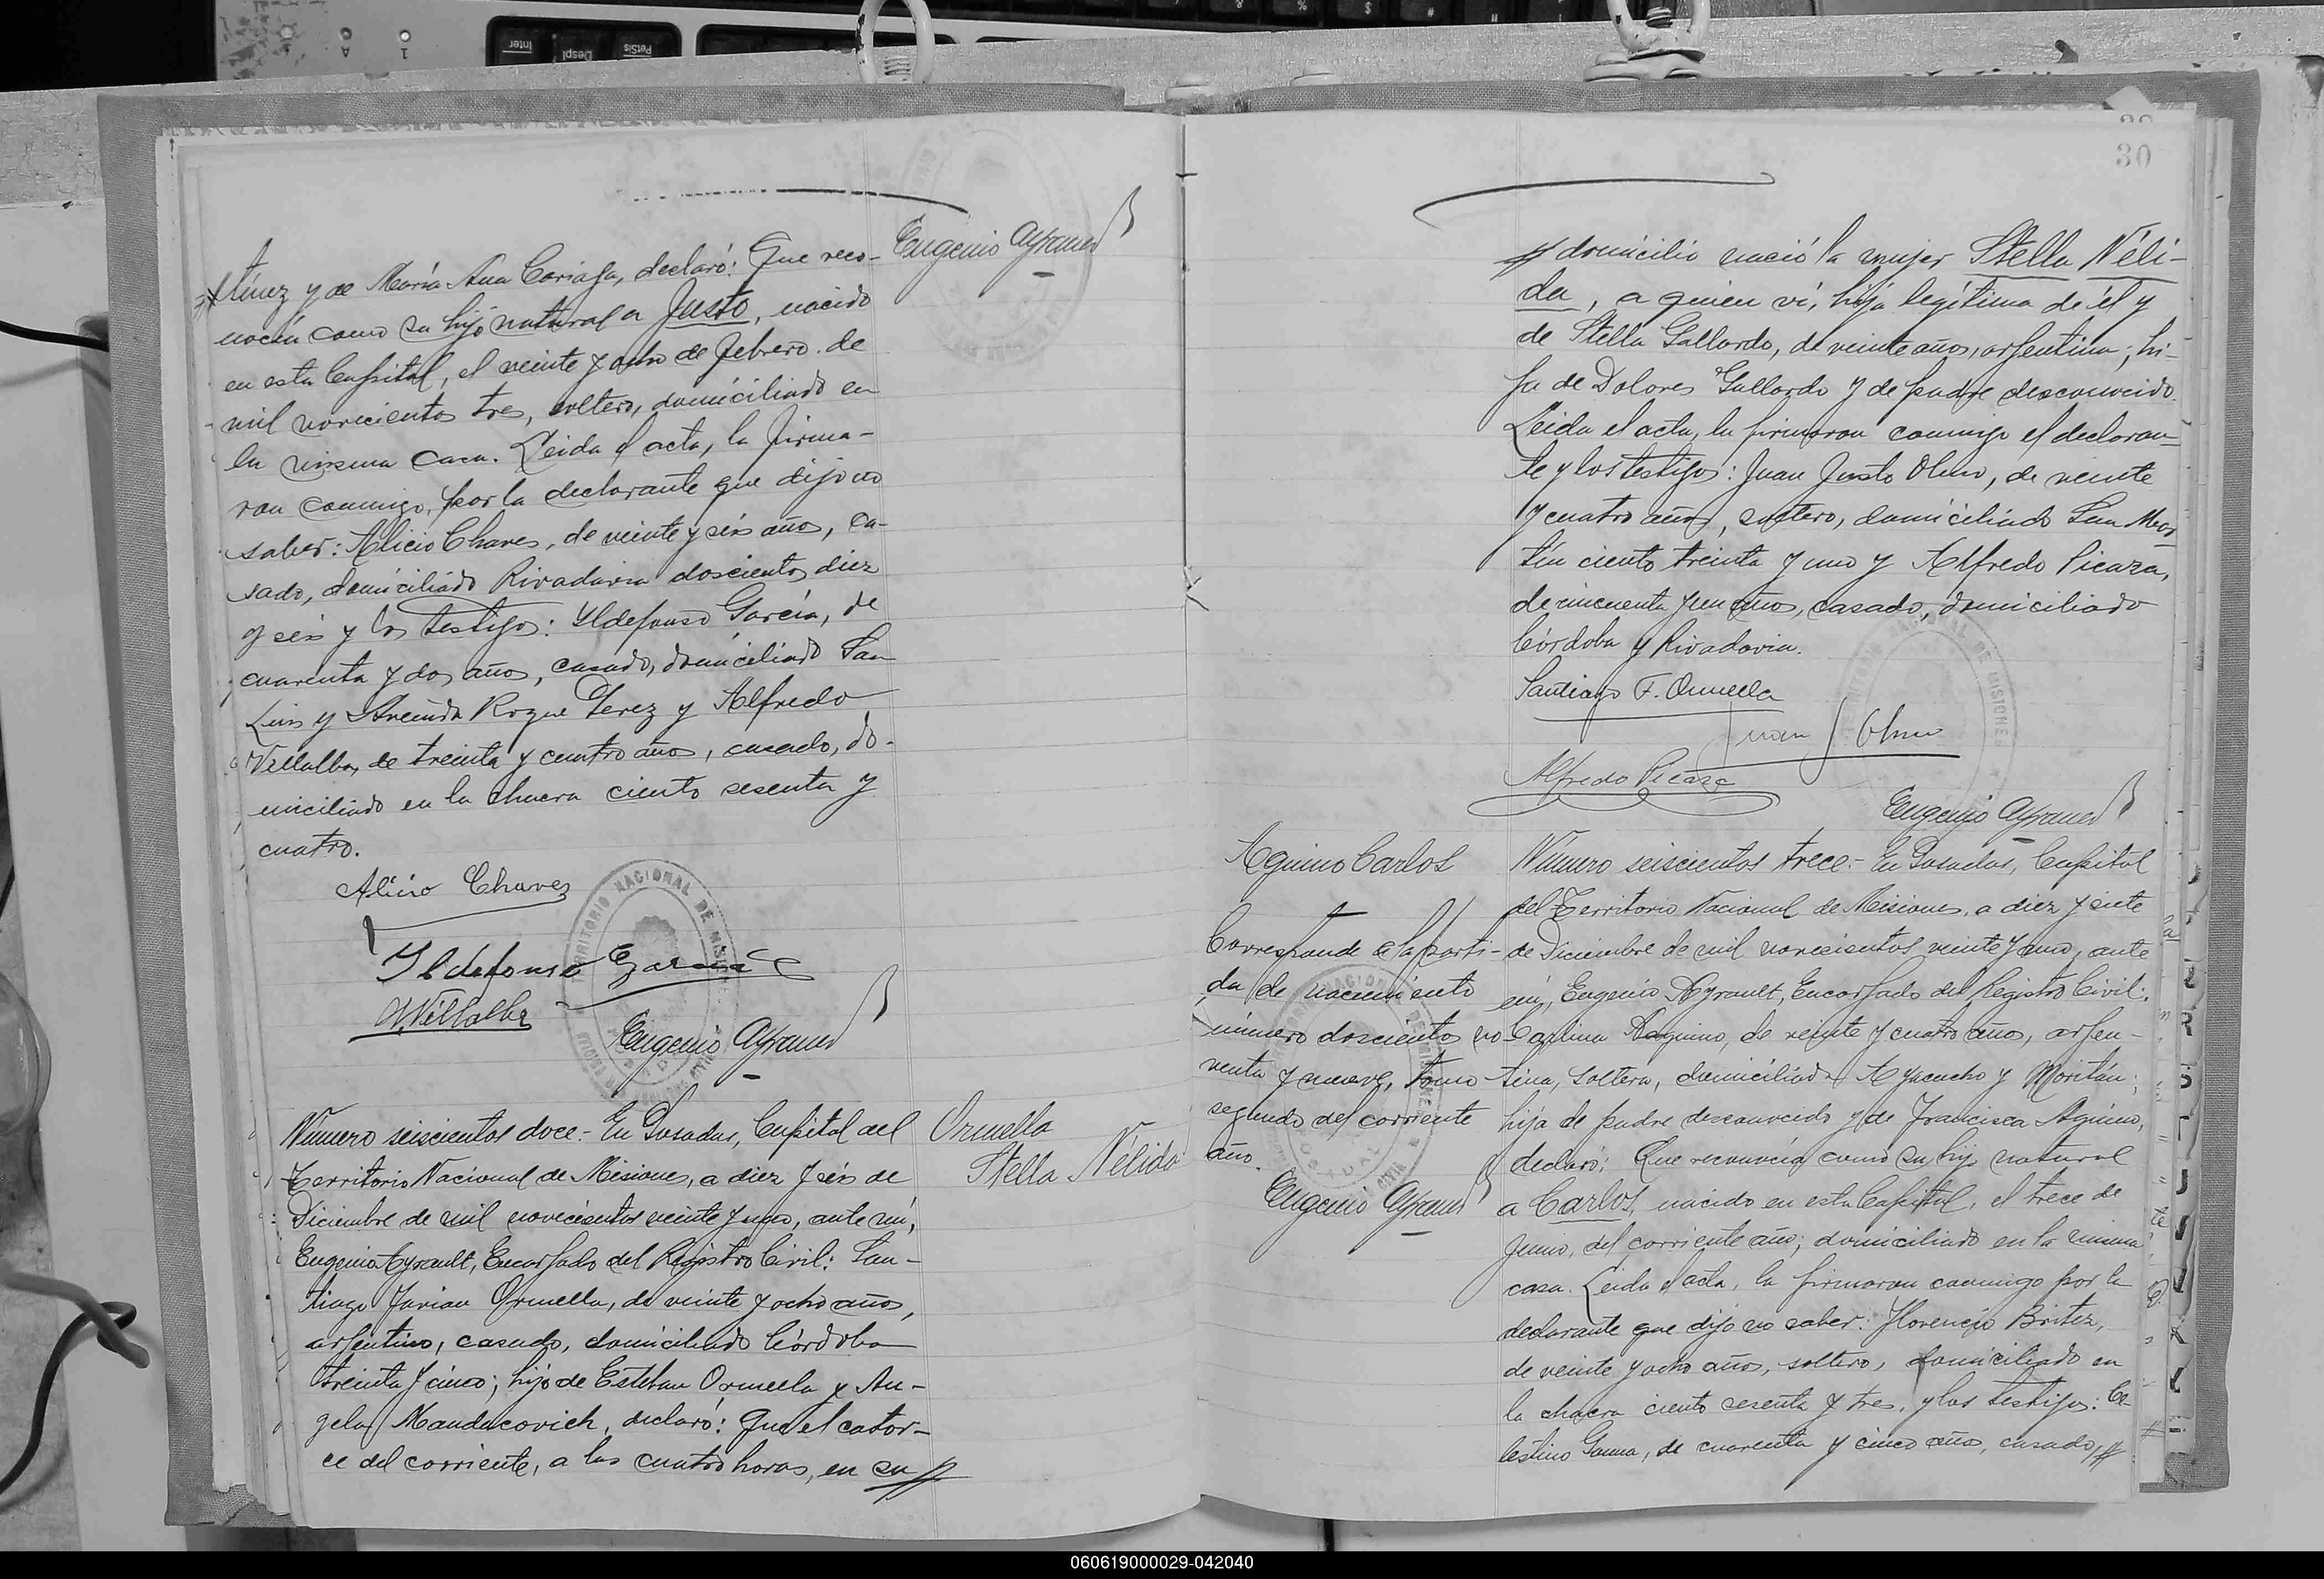 tínez y de María Ana Cariaga, declaró: Que reco-
nocía como su hijo natural a Justo, nacido
en esta Capital, el veinte y ocho de febrero de
mil novecientos tres, soltero, domiciliado en
la misma casa. Leida el acta, la firma-
ron conmigo, por la declarante que dijo no
saber: Alicio Chaves, de veinte y seis años, ca-
sado, domiciliado Rivadavia doscientos diez
y seis y los testigos: Ildefonso García, de
cuarenta y dos años, casado, domiciliado San
Luis y Avenida Roque Perez y Alfredo
Villalba, de treinta y cuatro años, casado, do-
miciliado en la chacra ciento sesenta y
cuatro.
Alicio Chavez
Ildefonso Garcia
A Villalba
Eugenio Ayrault
Eugenio Ayrault
TERRITORIO NACIONAL DE MISIONES
Número seiscientos doce.- En Posadas, Capital del
Territorio Nacional de Misiones, a diez y seis de
Diciembre de mil novecientos veinte y uno, ante mí,
Eugenio Ayrault, Encargado del Registro Civil: San-
tiago Ormella, de veinte y ocho años,
argentino, casado, domiciliado Córdoba
treinta y cinco; hijo de Esteban Ormella y An-
gela Manducovich, declaró: Que el cator-
ce del corriente, a las cuatro horas, en su
Ormella
Stella Nélida
30
domicilio nació la mujer Stella Néli-
da, a quien ví, hija legítima de él y
de Stella Gallardo, de veinte años, argentina; hi-
ja de Dolores Gallardo y de padre desconocido.
Leida el acta, la firmaron conmigo el declaran-
te y los testigos: Juan Justo Olmo, de veinte
y cuatro años, soltero, domiciliado San Mar
tín ciento treinta y uno y Alfredo Picaza,
de cincuenta y un años, casado, domiciliado
Córdoba y Rivadavia.
Santiago F. Ormella
Juan J Olmo
Alfredo Picaza
Eugenio Ayrault
Aquino Carlos
Corresponde a la parti-
da de nacimiento
número doscientos no
venta y nueve, tomo
segundo del corriente
año.
Eugenio Ayrault
Número seiscientos trece.- En Posadas, Capital
del Territorio Nacional de Misiones, a diez y siete
de Diciembre de mil novecientos veinte y uno, ante
mí, Eugenio Ayrault, Encargado del Registro Civil:
Carlina Aquino, de veinte y cuatro años, argen-
tina, soltera, domiciliada Ayacucho y Moritán;
hija de padre desconocido y de Francisca Aquino,
declaró: Que reconocía como su hijo natural
a Carlos, nacido en esta Capital, el trece de
Junio, del corriente año; domiciliado en la misma
casa. Leida el acta, la firmaron conmigo por la
declarante que dijo no saber: Florencio Britez,
de veinte y ocho años, soltero, domiciliado en
la chacra ciento sesenta y tres, y los testigos: Ce-
lestino Gauna, de cuarenta y cinco años, casado,
060619000029-042040